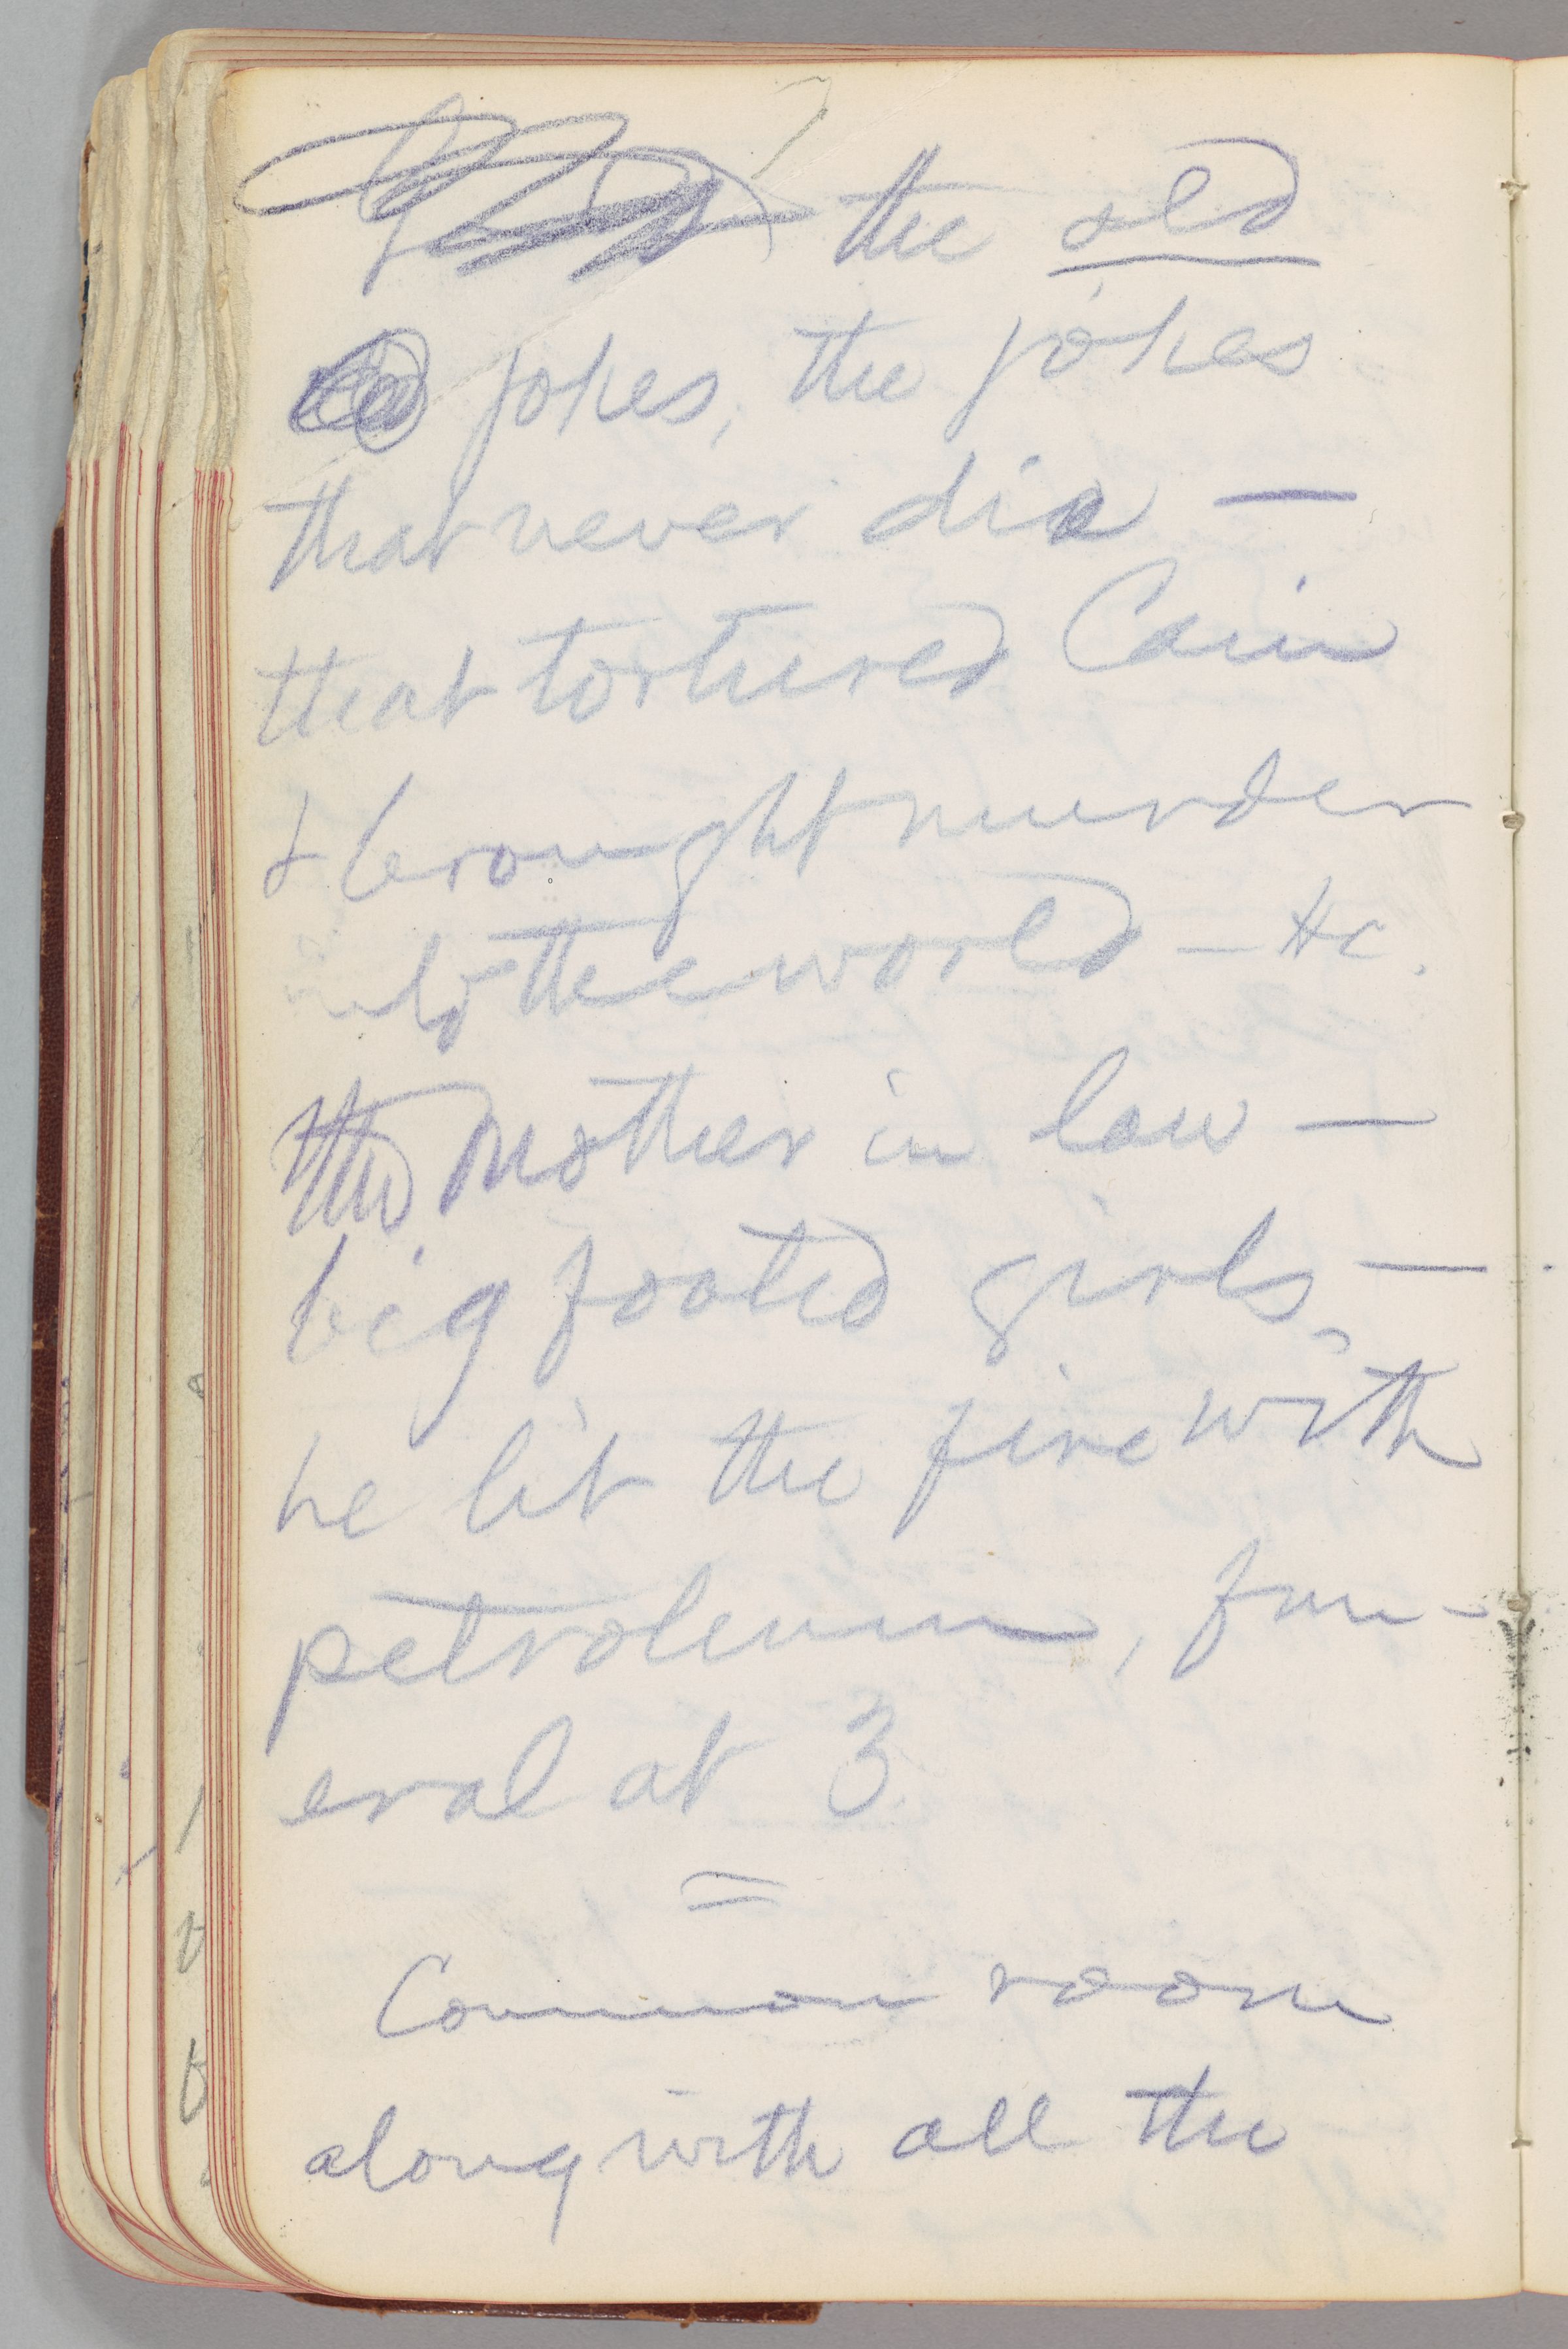 the old
jokes, the jokes
that never die —
that tortured Cain
& brought murder
into the world — &c.
The mother in law —
big footed girls, —
he lit the fire with
petroleum, fun-
eral at 3
=
Common room
along with all the